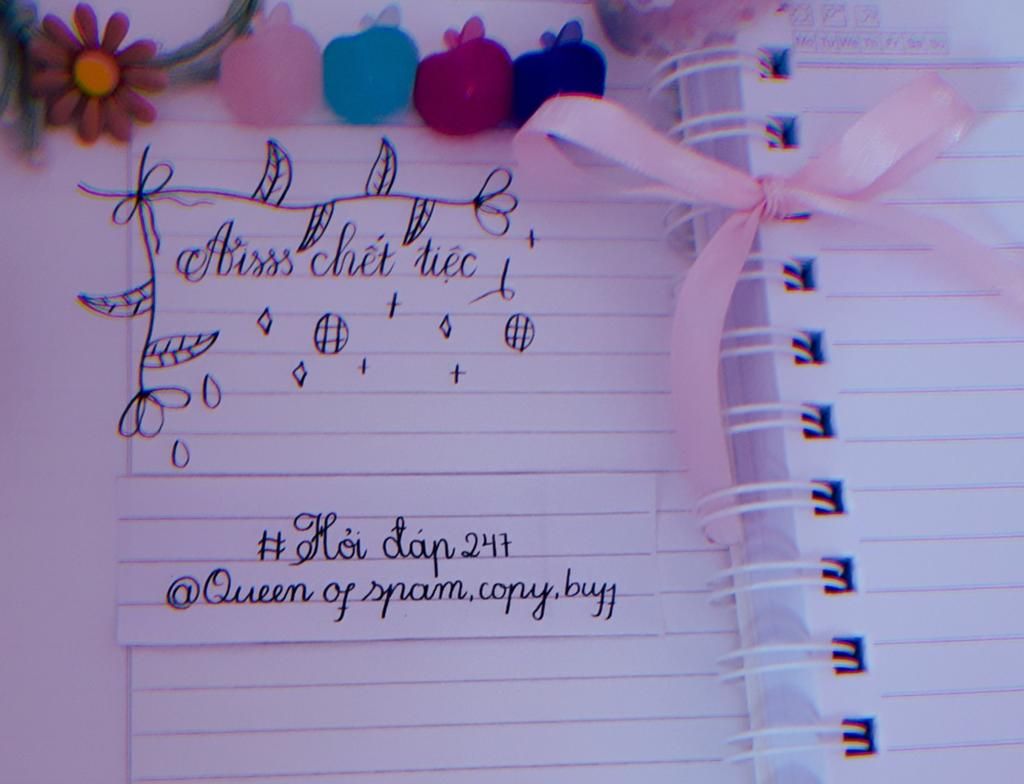 Mo Tu We Th Fr Sa Su
Aisss chết tiệc
#Hỏi đáp 247
@Queen of spam, copy, buff